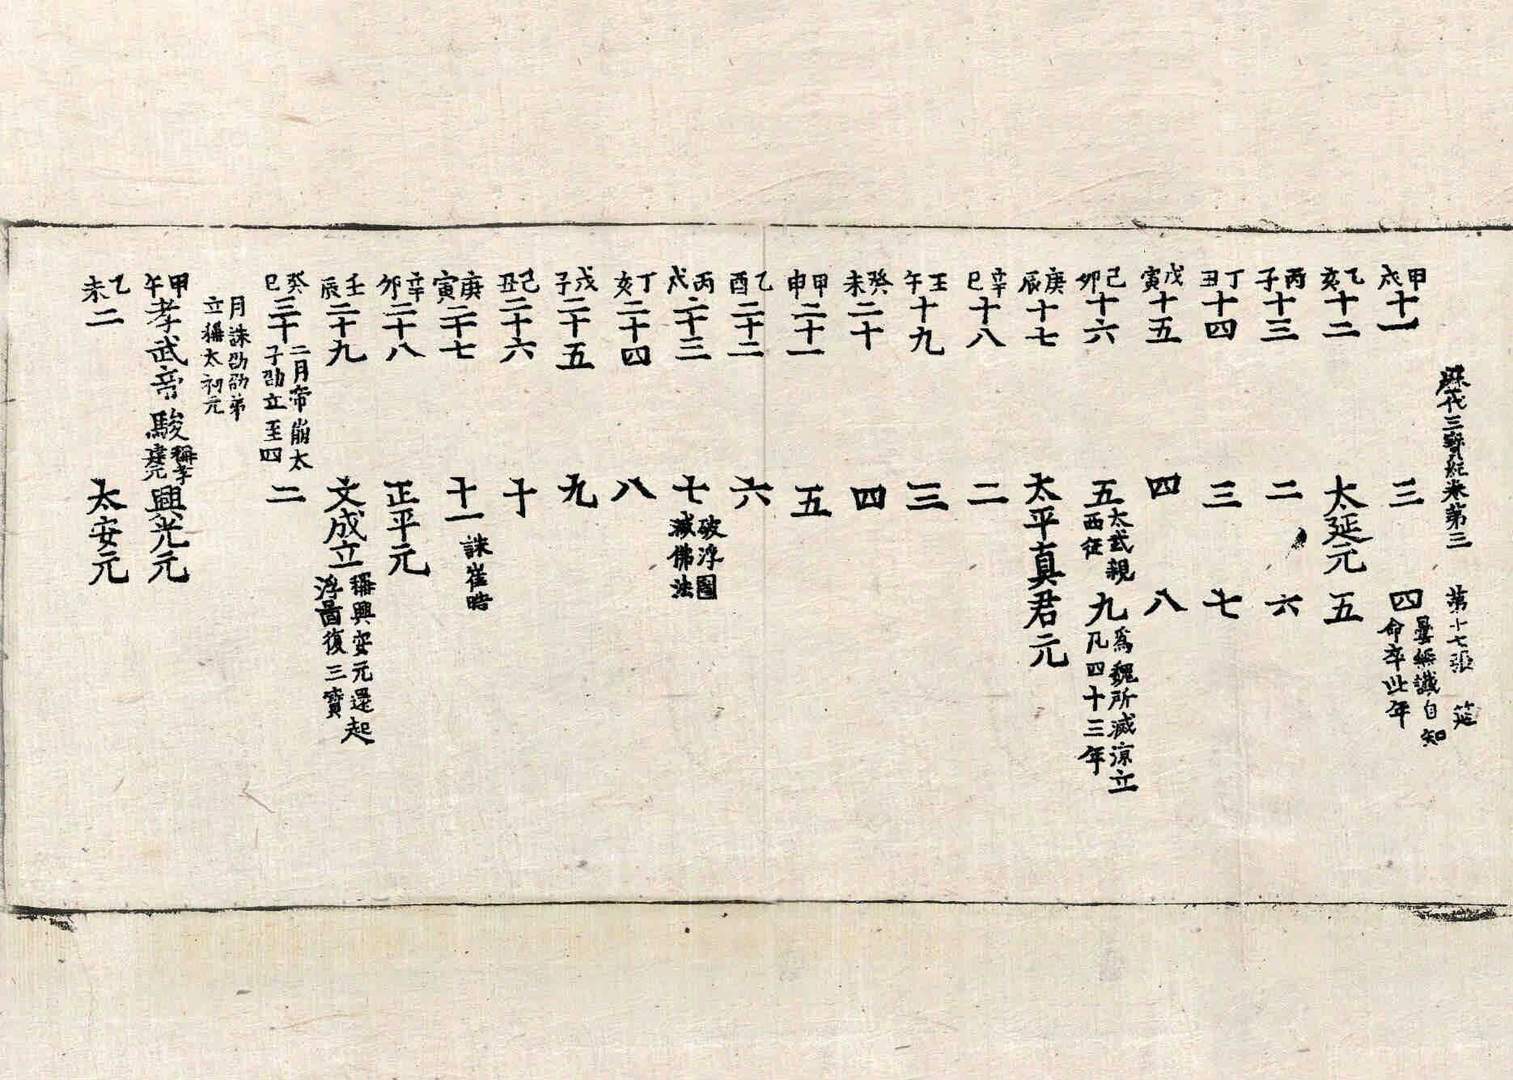 歷代三寶紀年第三 第十七張 筵
甲戌 十一 三 四 曇無讖自知命卒此年
乙亥 十二 太延元 五
丙子 十三 二 六
丁丑 十四 三 七
戊寅 十五 四 八
己卯 十六 五 太武親西征 九 爲魏所滅涼立凡四十三年
庚辰 十七 太平真君元
辛巳 十八 二
壬午 十九 三
癸未 二十 四
甲申 二十一 五
乙酉 二十二 六
丙戌 二十三 七 破浮圖滅佛法
丁亥 二十四 八
戊子 二十五 九
己丑 二十六 十
庚寅 二十七 十一 誅崔晧
辛卯 二十八 正平元
壬辰 二十九 文成立 稱興安元還起浮啚復三寶
癸巳 三十 二月帝崩太子劭立至四 二
月誅劭劭弟立稱太初元
甲午 孝武帝駿 稱孝建元 興光元
乙未 二 太安元